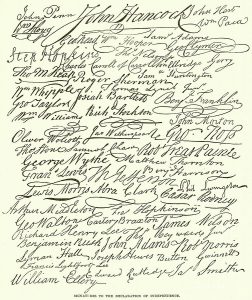 John Penn John Hancock John Hart
Wm Floyd Wm Paca
Wm Hooper Sam Adams
Step Hopkins Geo Clymer
Charles Carroll of Carrollton Elbridge Gerry
Tho M:Kean Roger Sherman Sam Huntington
Wm Whipple Thomas Lynch Jun
Geo Taylor Josiah Bartlett Benj Franklin
Wm Williams Rich Stockton
John Morton
Oliver Wolcott Jas Wilkinson Geo Ross
Thos Stone Samuel Chase Robt Treat Paine
George Wythe Matthew Thornton
Fran Lewis Benj Harrison
Lewis Morris Abra Clark Phil Livingston
Cæsar Rodney
Arthur Middleton Fras Hopkinson
Geo Walton Carter Braxton James Wilson
Richard Henry Lee Tho Heyward Junr
Benjamin Rush John Adams Robt Morris
Lyman Hall Joseph Hewes Button Gwinnett
Francis Lightfoot Lee
Edward Rutledge Jas Smith
William Ellery
SIGNATURES TO THE DECLARATION OF INDEPENDENCE.